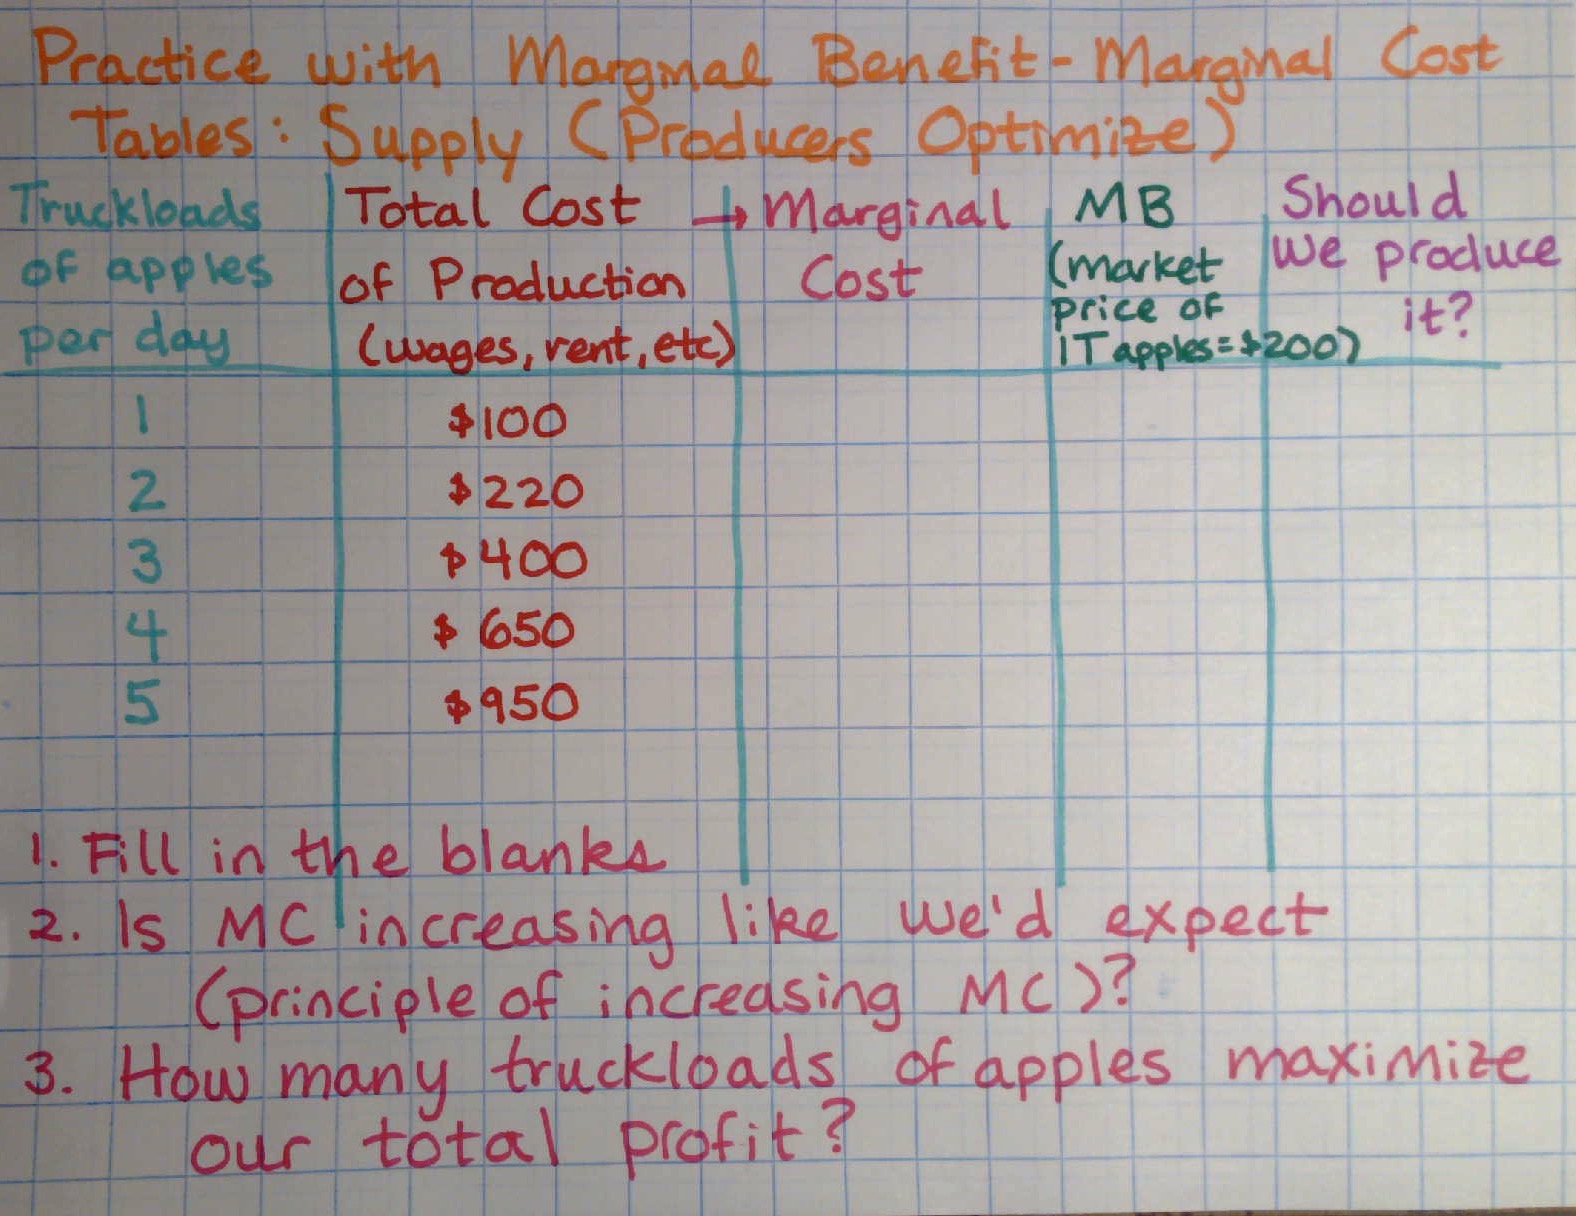 Practice with Marginal Benefit-Marginal Cost
Tables: Supply (Producers Optimize)
Truckloads
of apples
per day
Total Cost
of Production
(wages, rent, etc)
→ Marginal
Cost
MB
(market
price of
1T apples=$200)
Should
we produce
it?
1 $100
2 $220
3 $400
4 $650
5 $950
1. Fill in the blanks
2. Is MC increasing like we'd expect
(principle of increasing MC)?
3. How many truckloads of apples maximize
our total profit?